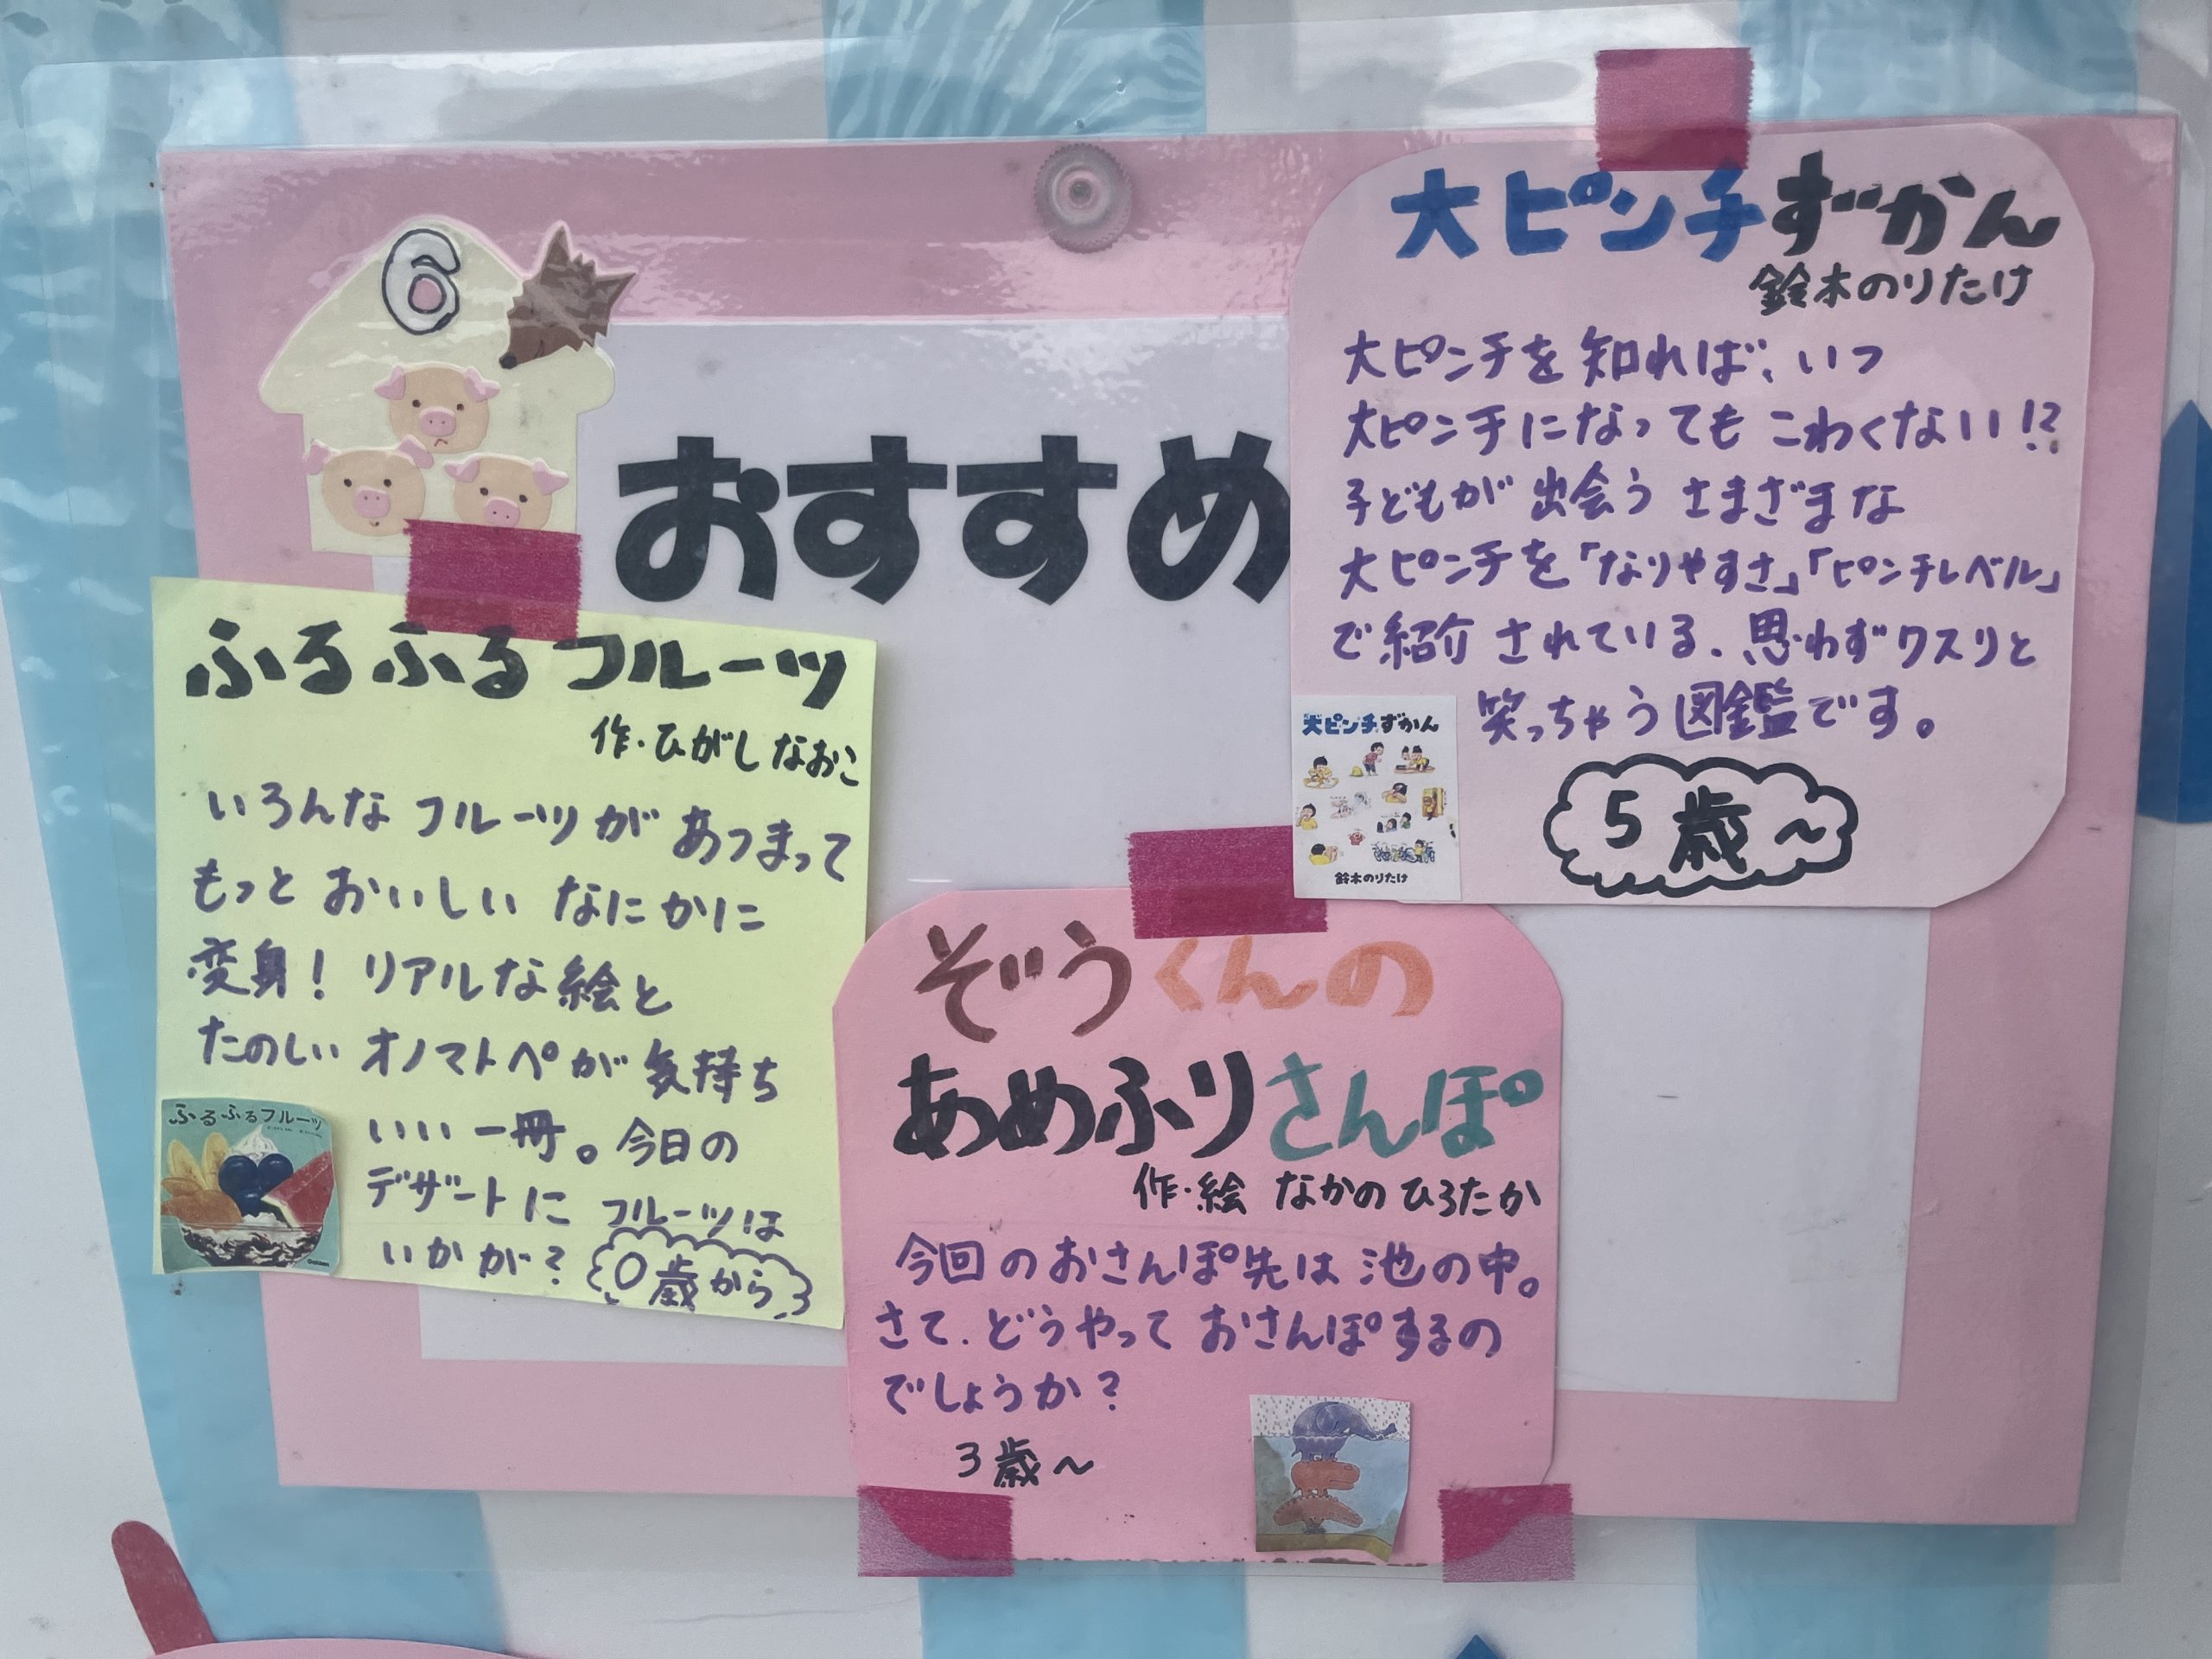 6
おすすめ
大ピンチずかん
鈴木のりたけ
大ピンチを知れば、いつ
大ピンチになっても こわくない!?
子どもが出会う さまざまな
大ピンチを「なりやすさ」「ピンチレベル」
で紹介されている。思わずクスリと
笑っちゃう図鑑です。
5歳~
大ピンチずかん
鈴木のりたけ
ふるふるフルーツ
作・ひがしなおこ
いろんな フルーツが あつまって
もっと おいしい なにかに
変身! リアルな絵と
たのしい オノマトペが 気持ち
いい一冊。今日の
デザートに フルーツは
いかが?
0歳から
ふるふるフルーツ
ぞうくんの
あめふりさんぽ
作・絵 なかのひろたか
今回のおさんぽ先は 池の中。
さて、どうやって おさんぽするの
でしょうか?
3歳~